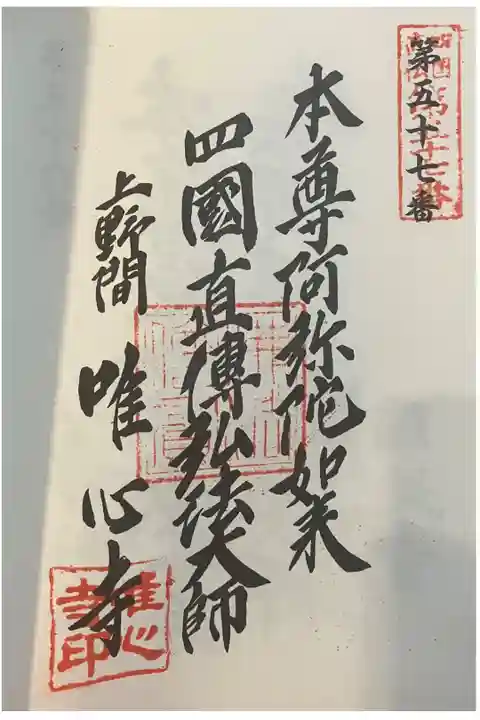 第五十七番
本尊阿弥陀如来
四國直傳弘法大師
上野間 唯心寺
唯心寺印